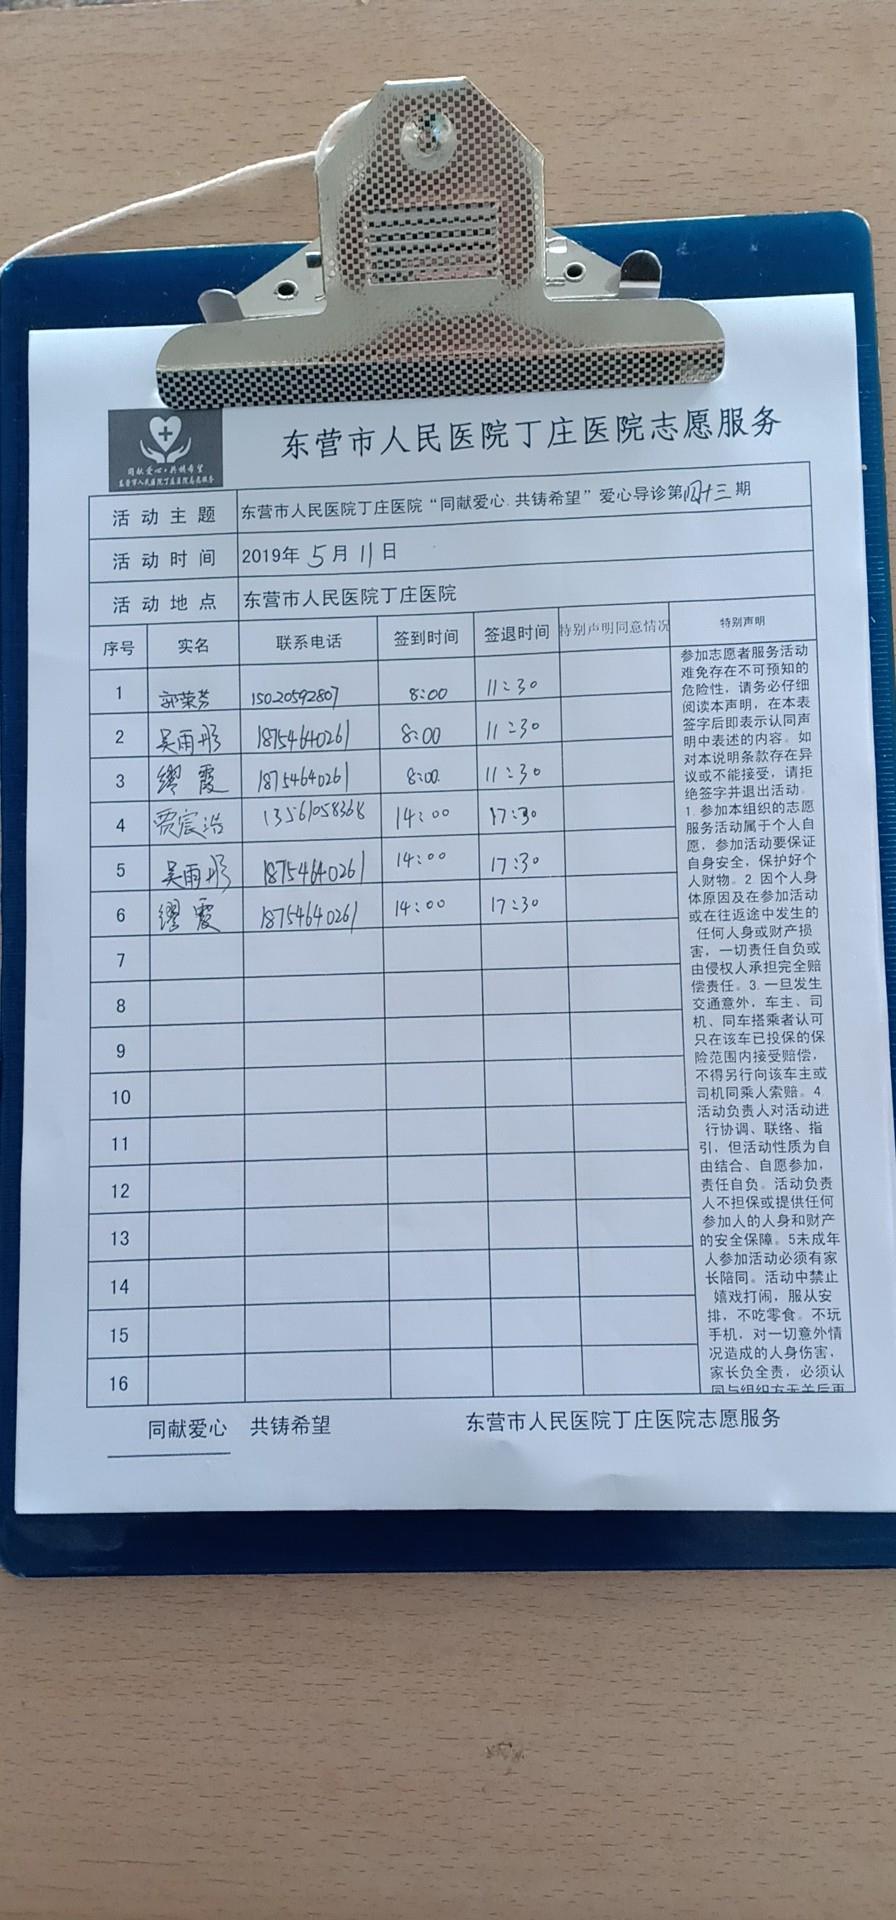 东营市人民医院丁庄医院志愿服务
同献爱心·共铸希望
东营市人民医院丁庄医院志愿服务
活动主题 东营市人民医院丁庄医院“同献爱心.共铸希望”爱心导诊第四十三期
活动时间 2019年 5月 11日
活动地点 东营市人民医院丁庄医院
序号 实名 联系电话 签到时间 签退时间 特别声明同意情况 特别声明
1 郭荣芬 15020592807 8:00 11:30
2 吴雨彤 18754640261 8:00 11:30
3 缪霞 18754640261 8:00 11:30
4 贾宸浩 13561058368 14:00 17:30
5 吴雨彤 18754640261 14:00 17:30
6 缪霞 18754640261 14:00 17:30
7
8
9
10
11
12
13
14
15
16
参加志愿者服务活动
难免存在不可预知的
危险性，请务必仔细
阅读本声明，在本表
签字后即表示认同声
明中表述的内容。如
对本说明条款存在异
议或不能接受，请拒
绝签字并退出活动。
1.参加本组织的志愿
服务活动属于个人自
愿，参加活动要保证
自身安全，保护好个
人财物。2.因个人身
体原因及在参加活动
或在往返途中发生的
任何人身或财产损
害，一切责任自负或
由侵权人承担完全赔
偿责任。3.一旦发生
交通意外，车主、司
机、同车搭乘者认可
只在该车已投保的保
险范围内接受赔偿，
不得另行向该车主或
司机同乘人索赔。4.
活动负责人对活动进
行协调、联络、指
引，但活动性质为自
由结合、自愿参加，
责任自负。活动负责
人不担保或提供任何
参加人的人身和财产
的安全保障。5未成年
人参加活动必须有家
长陪同。活动中禁止
嬉戏打闹，服从安
排，不吃零食。不玩
手机，对一切意外情
况造成的人身伤害，
家长负全责，必须认
同与组织方无关后再
同献爱心 共铸希望 东营市人民医院丁庄医院志愿服务